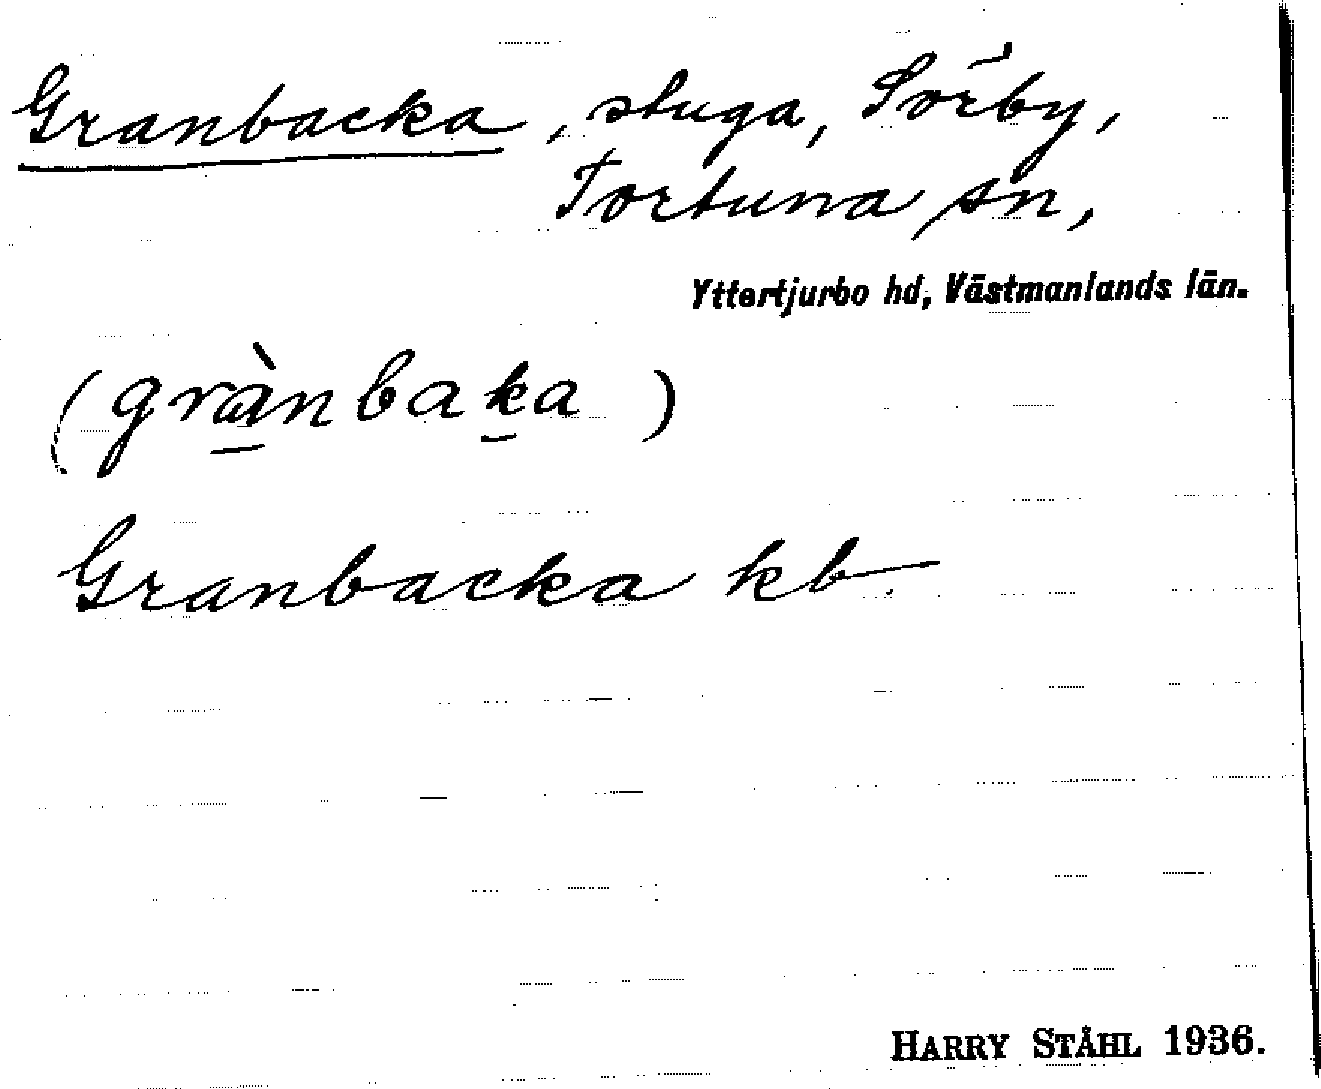 Granbacka, stuga, Sörby,
Tortuna sn,
Yttertjurbo hd, Västmanlands län.
(grànbaka)
Granbacka kb.
HARRY STÅHL 1936.